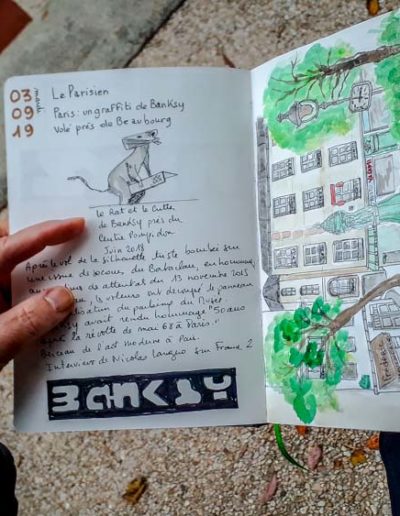 03
mardi
09
19
Le Parisien
Paris : un graffiti de Banksy
Volé près de Beaubourg
Le Rat et le Cutter
de Banksy près du
Centre Pompidou
Juin 2018
Après le vol de la silhouette triste bombée sur
une issue de secours du Bataclan, en hommage
attentat du 13 novembre 2015
voleurs ont découpé le panneau
du parking du Musée.
avant rendu hommage "50 ans
après la révolte de mai 68 à Paris."
de l'art moderne à Paris
Interview de Nicolas Laugero sur France 2
BANKSY